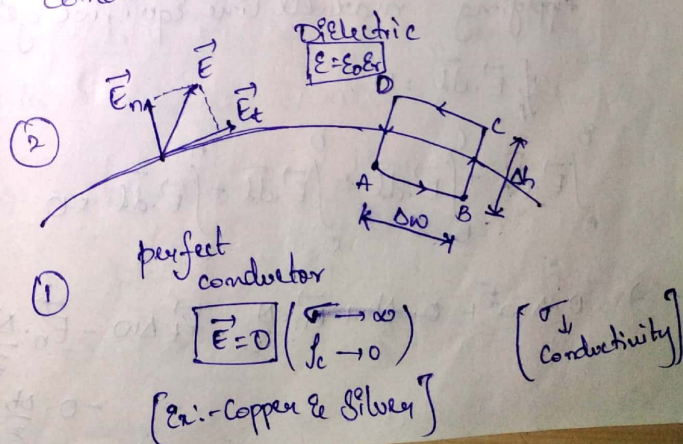 Dielectric
ε=ε₀εᵣ
E⃗
E⃗n
E⃗t
D
C
②
A
B
Δh
Δw
perfect
conductor
①
E⃗=0 (σ→∞
ρc→0)
[σ
↓
Conductivity]
[Ex:-Copper & Silver]